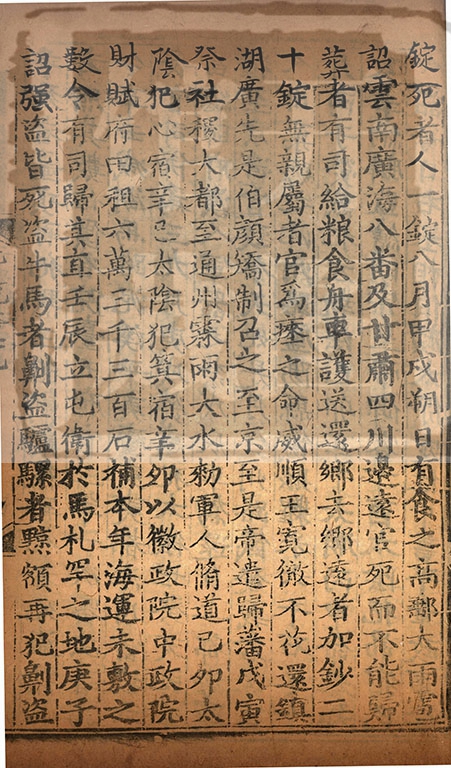 錠死者人一錠八月甲戌朔日有食之高郵大雨雹
詔雲南廣海八番及甘肅四川邊遠官死而不能歸
葬者有司給粮食舟車護送還鄉去鄉遠者加鈔二
十錠無親屬者官爲瘞之命威順王寛徹不花還鎮
湖廣先是伯顔矯制召之至京至是帝遣歸藩戊寅
祭社稷大都至通州霖雨大水勑軍人脩道己卯太
陰犯心宿辛巳太陰犯箕宿辛卯以徽政院中政院
財賦府田租六萬三千三百石補本年海運未敷之
數令有司歸其直壬辰立屯衛於馬札罕之地庚子
詔强盗皆死盗牛馬者劓盗驢騾者黥額再犯劓盗